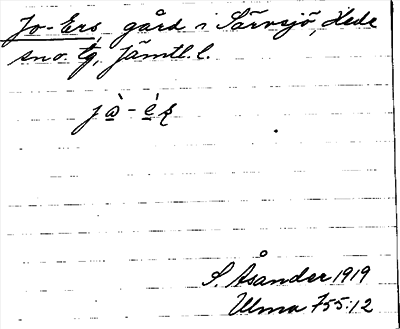 Jo-Ers, gård i Särvsjö, Hede
sn o. tg, Jämtl. l.
jà-èʂ
S. Åsander 1919
Ulma 755:12